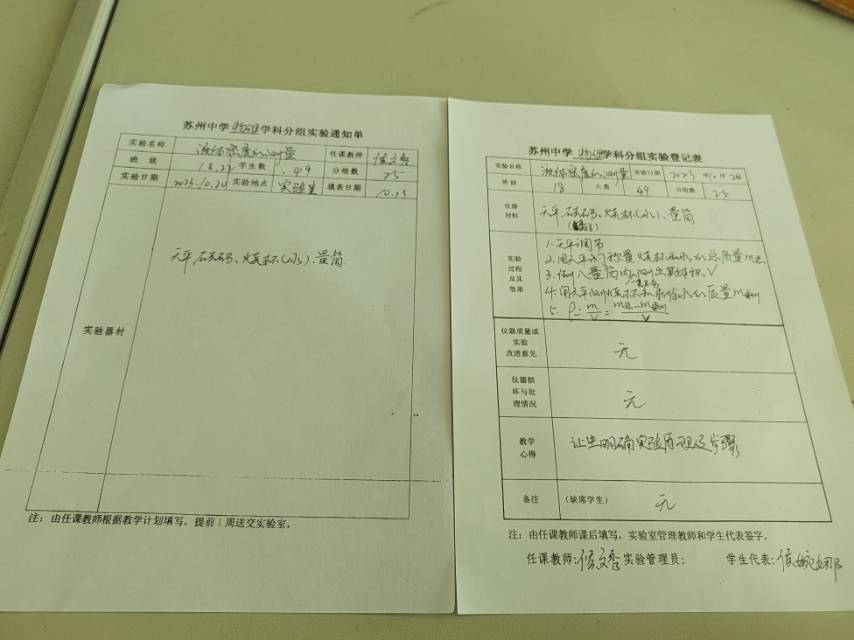 苏州中学物理学科分组实验通知单
实验名称 液体密度的测量 任课教师
班级 18.22 学生数 49 分组数 25
实验日期 2023.10.20 实验地点 实验室 填表日期 10.13
实验器材
天平、砝码、烧杯(水)、量筒
注：由任课教师根据教学计划填写，提前1周送交实验室。
苏州中学物理学科分组实验登记表
实验名称 液体密度的测量 实验日期 2023年10月20
班级 18 人数 49 分组数 25
仪器材料
天平、砝码、烧杯(水)、量筒
实验过程及其效果
1.天平调节
2.用天平称量烧杯和水的总质量m总
3.倒入量筒内测出体积V
4.用天平测烧杯和剩余水的质量m剩
5. ρ=m/V=(m总-m剩)/V
仪器质量或实验改进意见
无
仪器损坏与处理情况
无
教学心得
让生明确实验原理及步骤
备注 (缺席学生) 无
注：由任课教师课后填写，实验室管理教师和学生代表签字。
任课教师: 实验管理员: 学生代表: